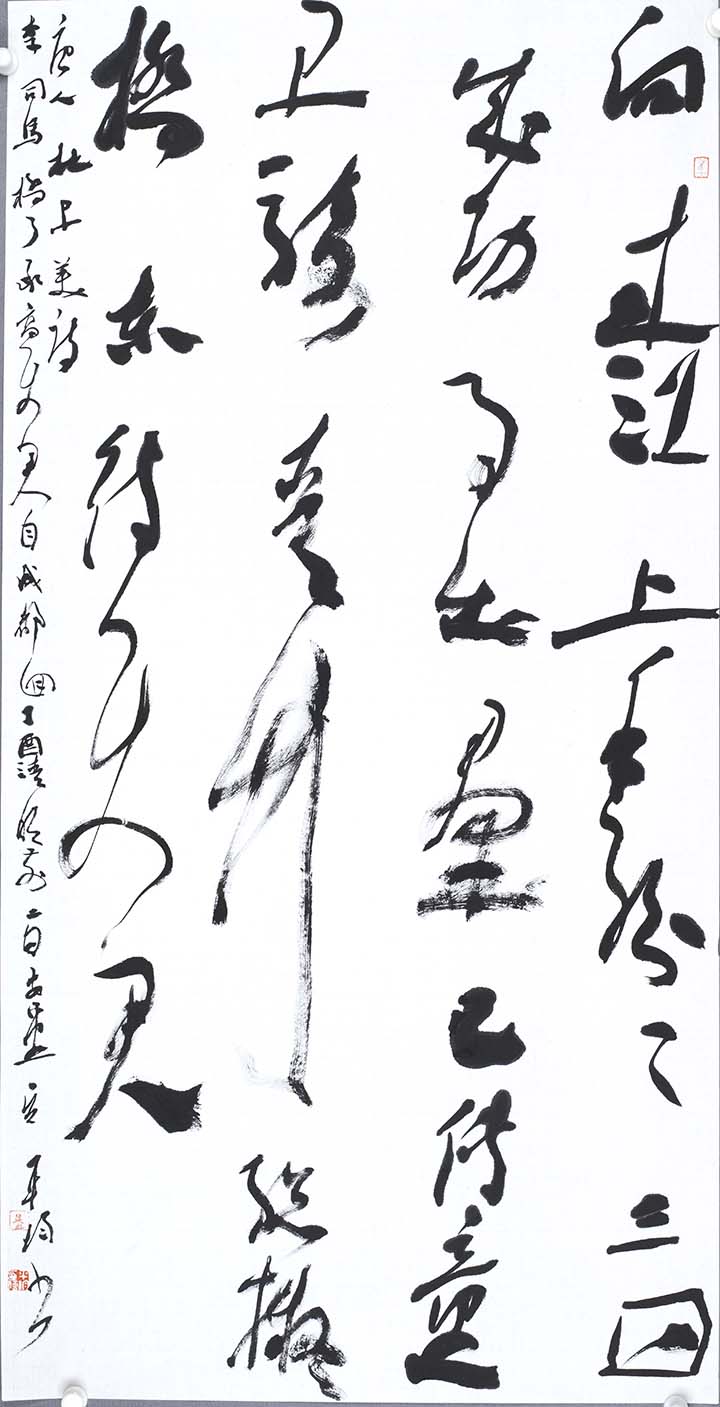 向来江上手紛〻三日
成功事出羣已传童
子骑青竹総擬
橋東待使君
唐人杜子美詩
李司馬橋了承高使君自成都迴丁酉清明前一日